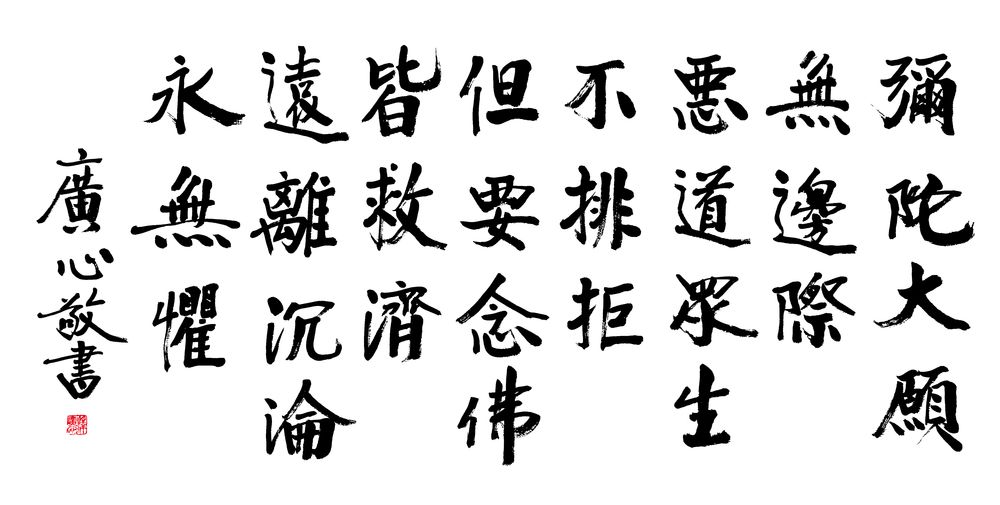 彌陀大願
無邊際
惡道眾生
不排拒
但要念佛
皆救濟
遠離沉淪
永無懼
廣心敬書